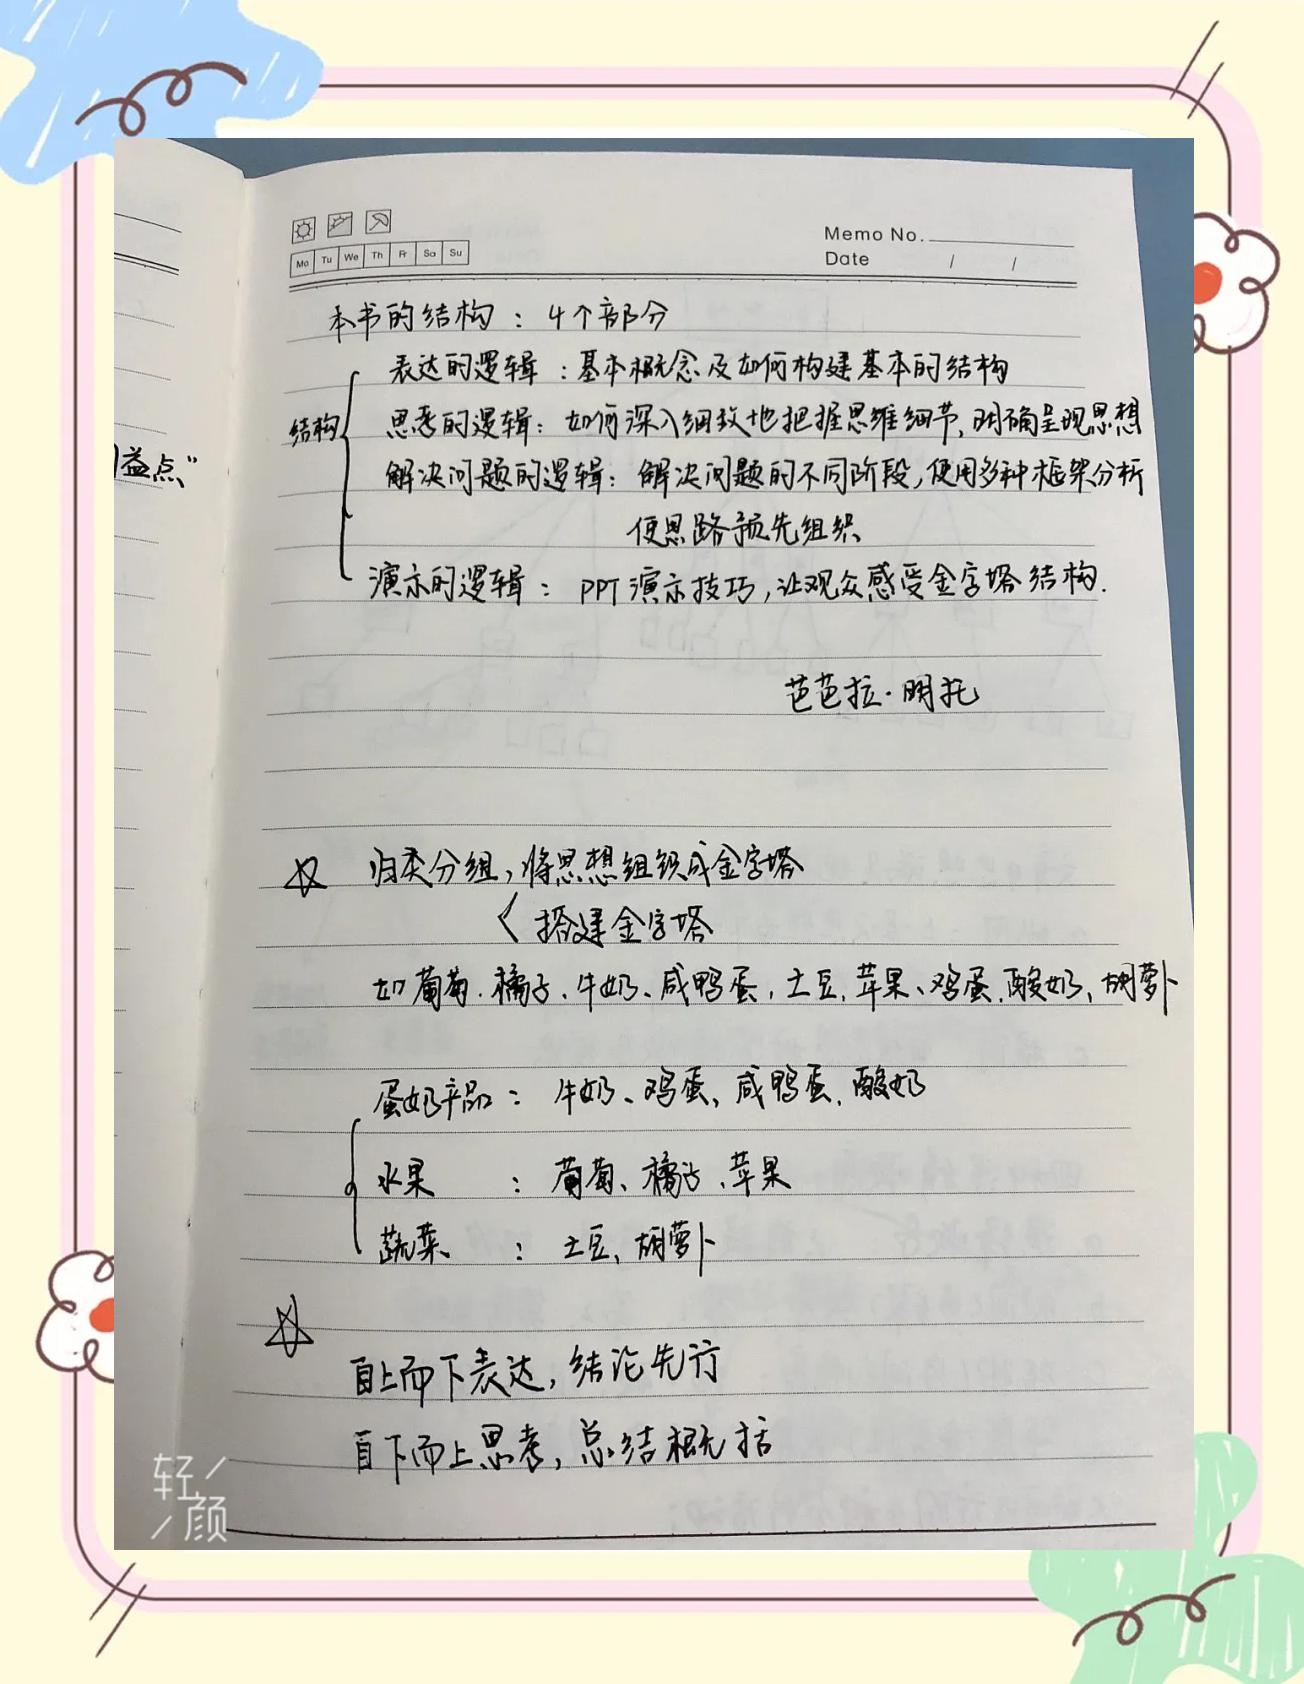 Mo Tu We Th Fr Sa Su
Memo No.
Date / /
本书的结构：4个部分
结构
表达的逻辑：基本概念及如何构建基本的结构
思考的逻辑：如何深入细致地把握思维细节，明确呈现思想
解决问题的逻辑：解决问题的不同阶段，使用多种框架分析
使思路预先组织
演示的逻辑：PPT演示技巧，让观众感受金字塔结构.
益点”
芭芭拉·明托
☆ 归类分组，将思想组织成金字塔
搭建金字塔
如葡萄、橘子、牛奶、咸鸭蛋，土豆，苹果、鸡蛋，酸奶，胡萝卜
蛋奶产品：牛奶、鸡蛋，咸鸭蛋，酸奶
水果：葡萄、橘子、苹果
蔬菜：土豆，胡萝卜
☆
自上而下表达，结论先行
自下而上思考，总结概括
轻颜